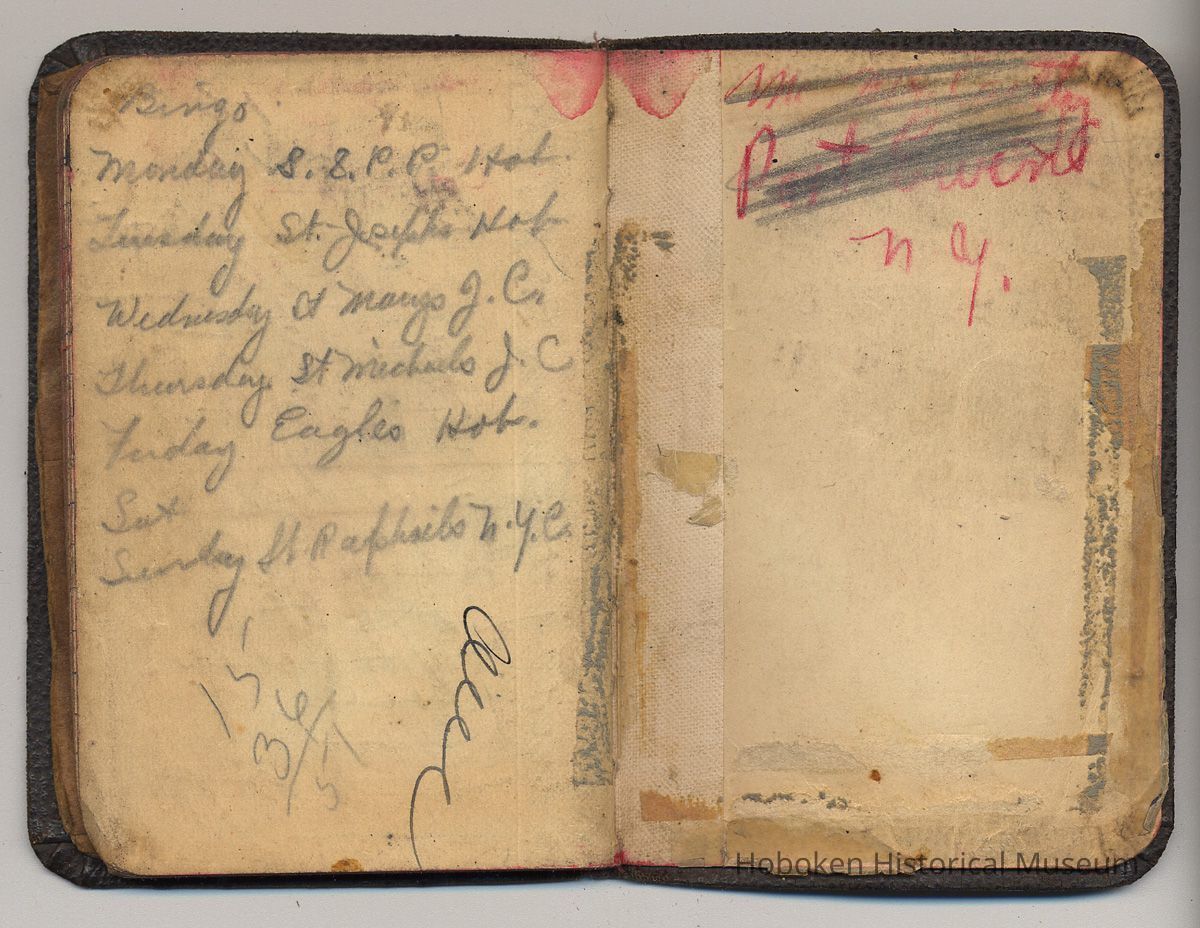 Bingo
Monday S.S.P.P. Hob.
Tuesday St. Josephs Hob
Wednesday St Marys J.C.
Thursday St Michaels J.C
Friday Eagles Hob.
Sat
Sunday St Raphaels N.Y.C.
Port
N Y.
Hoboken Historical Museum